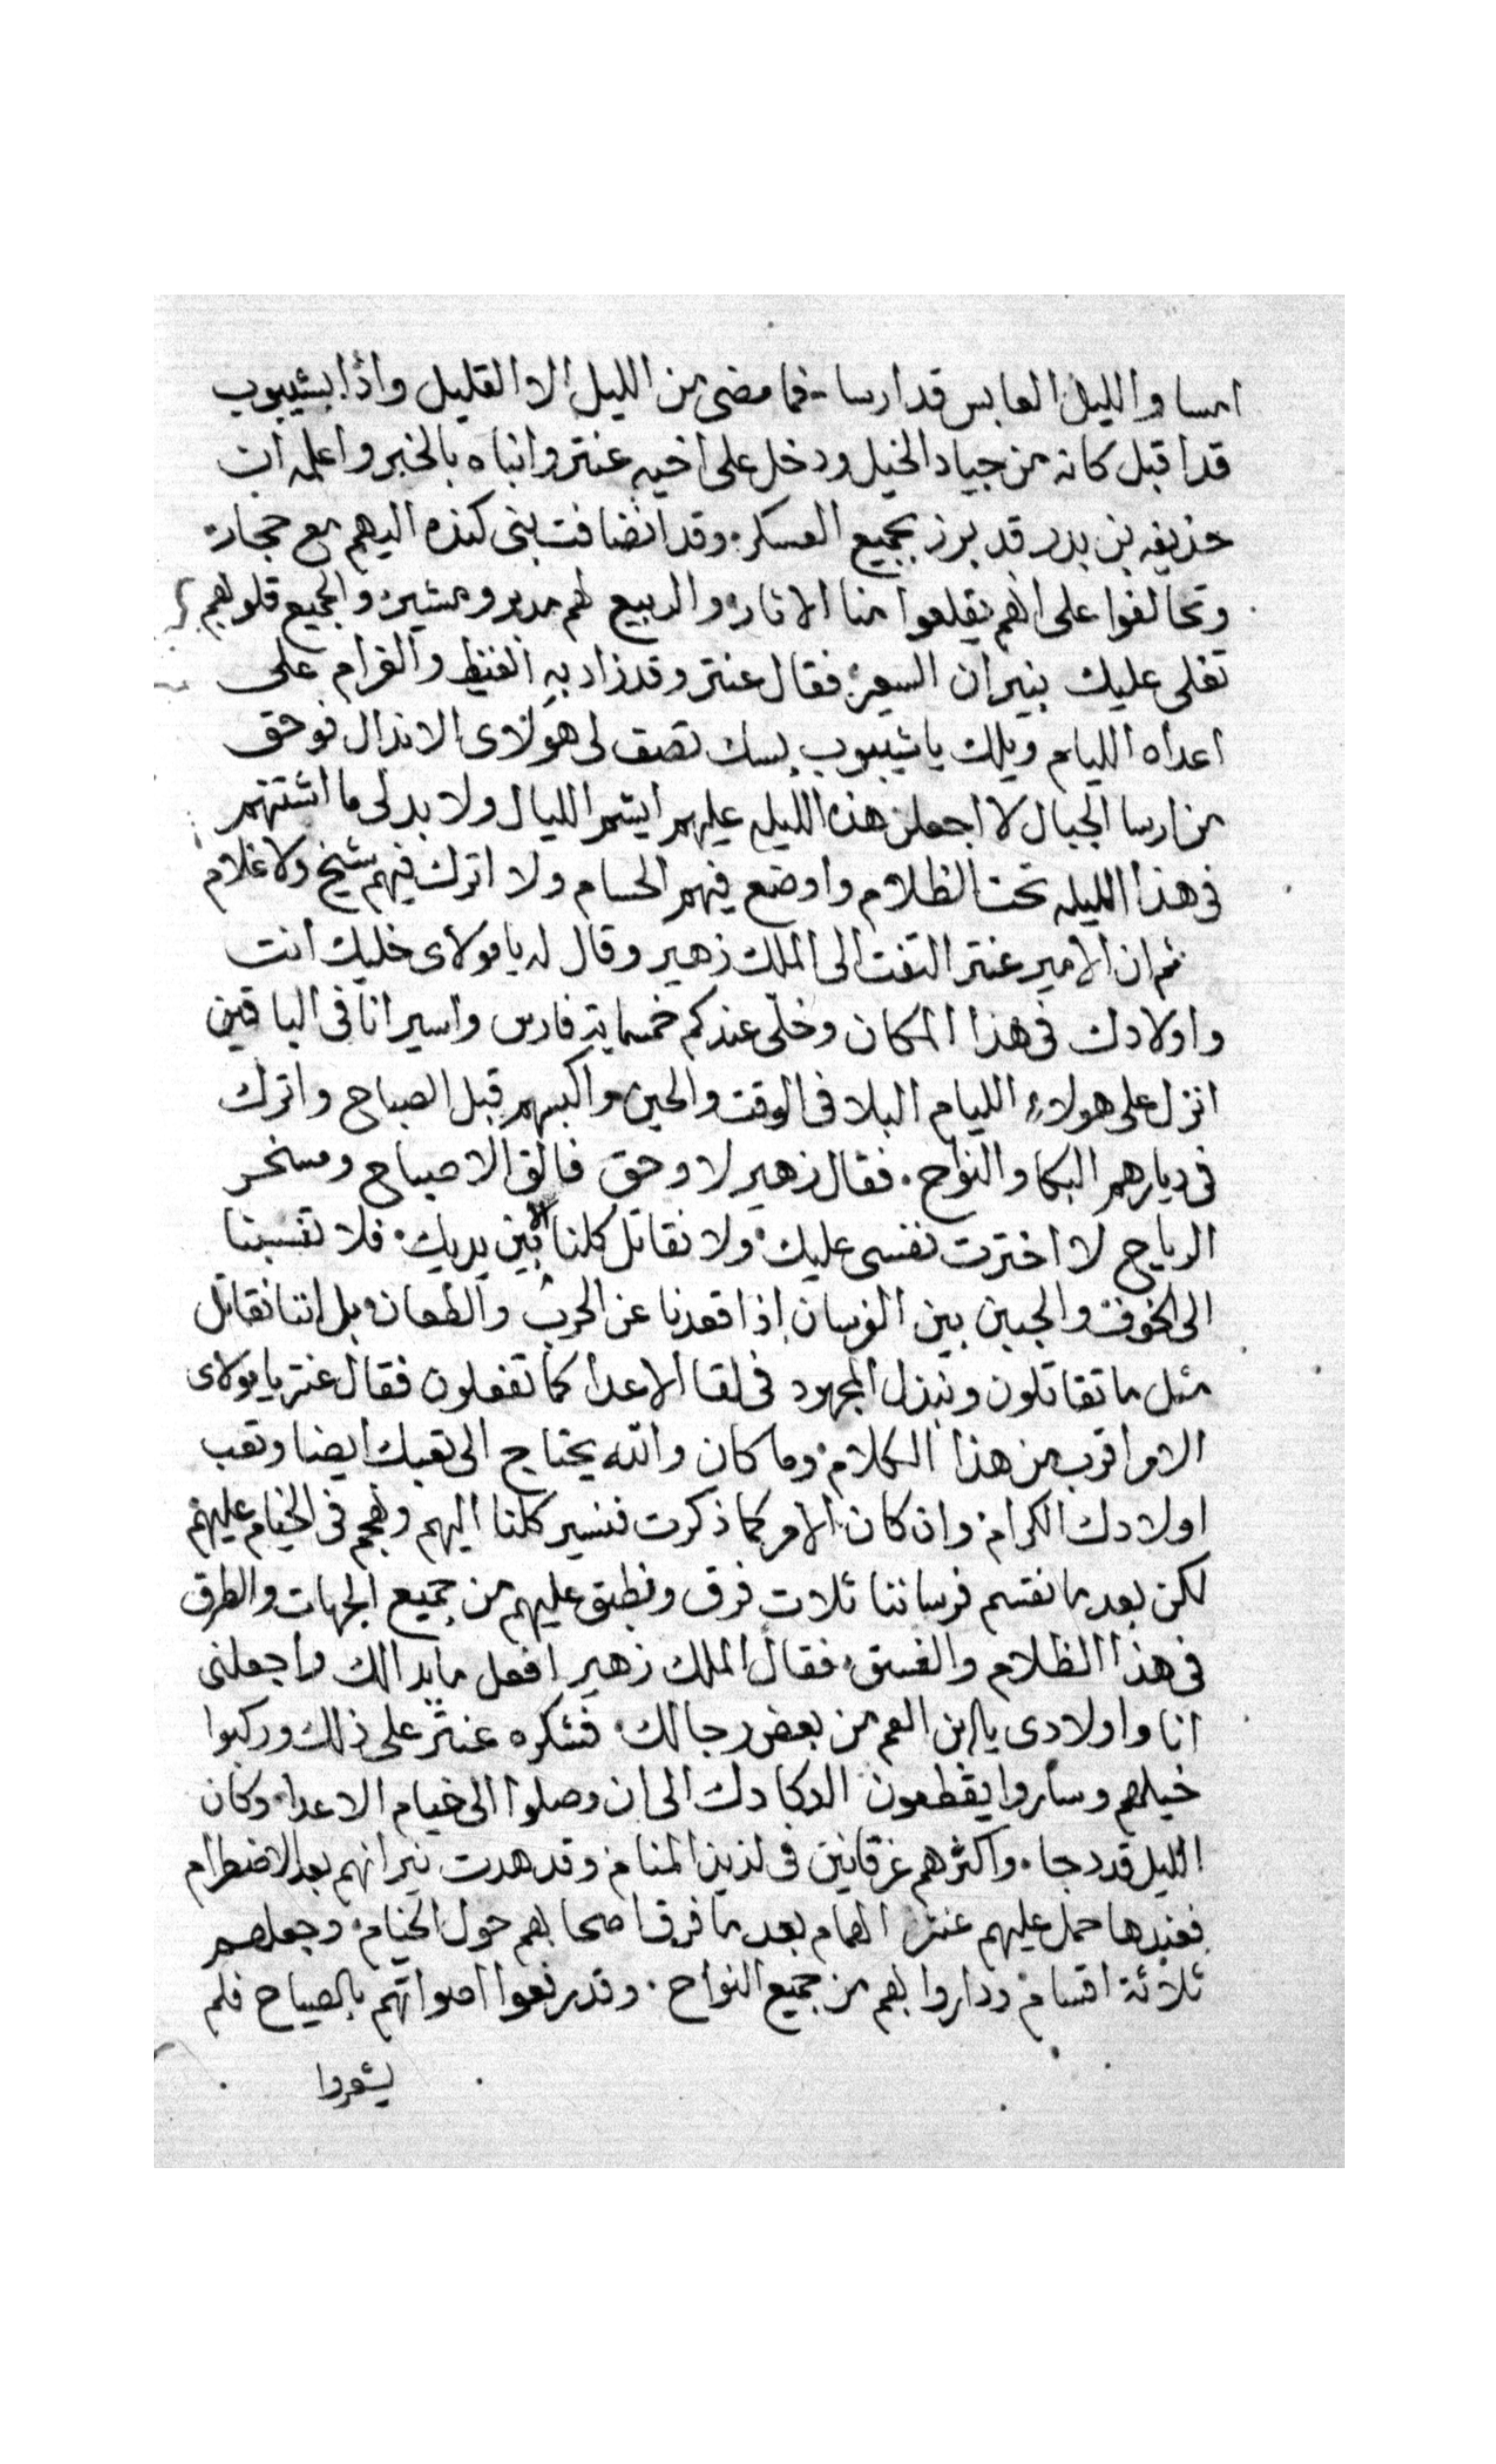 امسا والليل العابس قد ارسا فما مضى من الليل الا القليل واذا بشيبوب
قد اقبل كانه من جياد الخيل ودخل على اخيه عنتر وانباه بالخبر واعلمه ان
حذيفه بن بدر قد برز بجميع العسكر وقد انضافت بنى كنده اليهم مع حجار
وتحالفوا على انهم يقلعوا منا الاثار والربيع لهم مدبر ومشير والجميع قلوبهم
تغلى عليك بنيران السعير فقال عنتر وقد زاد به الغيظ والغرام على
اعداه الليام ويلك يا شيبوب بسك تصف لى هولاى الاندال فوحق
من ارسا الجبال لا اجعلن هذه الليله عليهم ايشم الليال ولا بد لى ما اشتتهم
فى هذا الليله تحت الظلام واوضع فيهم الحسام ولا اترك فيهم شيخ ولا غلام
ثم ان الامير عنتر التفت الى الملك زهير وقال له يا مولاى خليك انت
واولادك فى هذا المكان وخلى عندكم خمسماية فارس واسير انا فى الباقين
انزل على هولاء الليام البلا فى الوقت والحين واكبسهم قبل الصباح واترك
فى ديارهم البكا والنواح . فقال زهير لا وحق فالق الاصباح ومسخر
الرياح لا اخترت نفسى عليك ولا نقاتل كلنا الا بين يديك فلا تنسبنا
الى الخوف والجبين بين الفرسان اذا قعدنا عن الحرب والطعان بل اننا نقاتل
مثل ما تقاتلون ونبذل المجهود فى لقا الاعدا كما تفعلون فقال عنتر يا مولاى
الامر اقرب من هذا الكلام وما كان والله يحتاج الى تعبك ايضا وتعب
اولادك الكرام وان كان الامر كما ذكرت فنسير كلنا اليهم ونهجم فى الخيام عليهم
لكن بعد ما نقسم فرساننا ثلاث فرق ونطبق عليهم من جميع الجهات والطرق
فى هذا الظلام والغسق فقال الملك زهير افعل ما بدا لك واجعلنى
انا واولادى يا ابن العم من بعض رجالك فشكره عنتر على ذلك وركبوا
خيلهم وساروا يقطعون الدكادك الى ان وصلوا الى خيام الاعدا وكان
الليل قد دجا . واكثرهم غرقانين فى لذيذ المنام وقد هدت نيرانهم بعد الاضطرام
فعندها حمل عليهم عنتر الهمام بعد ما فرق اصحابهم حول الخيام وجعلهم
ثلاثة اقسام وداروا بهم من جميع النواح . وقد رفعوا اصواتهم بالصياح فلم
يشعروا